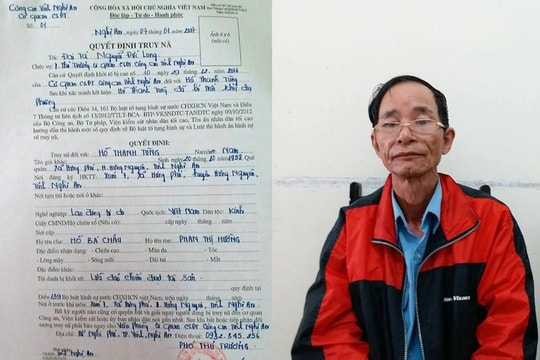 Công an tỉnh Nghệ An
CỘNG HÒA XÃ HỘI CHỦ NGHĨA VIỆT NAM
Cơ quan CSĐT
Độc lập - Tự do - Hạnh phúc
Số: 01
Nghệ An, ngày 04 tháng 01 năm
QUYẾT ĐỊNH TRUY NÃ
Ảnh 4 x 6
(nếu có)
Tôi: Đại Tá Nguyễn Long
Chức vụ: Thủ Trưởng Cơ quan CSĐT Công an tỉnh Nghệ An
Căn cứ Quyết định khởi tố bị can số 10 ngày 23 12
Cơ quan CSĐT Công an tỉnh Nghệ An đối với Hồ Thanh Tùng
Sau khi xác minh kết luận Hồ Thanh Tùng
Phương
Căn cứ các Điều 34, 161 Bộ luật tố tụng hình sự nước CHXHCN Việt Nam và Điều
7 Thông tư liên tịch số 13/2012/TTLT-BCA- BTP-VKSNDTC-TANDTC ngày 09/10/2012
của Bộ Công an, Bộ Tư pháp, Viện kiểm sát nhân dân tối cao, Tòa án nhân dân tối cao
hướng dẫn thi hành một số quy định về Bộ luật tố tụng hình sự và Luật thi hành án hình sự
về truy nã,
QUYẾT ĐỊNH:
Truy nã đối với: HỒ THANH TÙNG Nam/nữ: Nam
Tên gọi khác: Sinh ngày 20 tháng 10 năm 1952
quán: Xã Hưng Phú, H. Hưng Nguyên, Tỉnh Nghệ An
Nơi đăng ký HKTT: Xóm 1, Xã Hưng Phú, Huyện Hưng Nguyên,
Tỉnh Nghệ An
Nơi tạm trú hoặc nơi ở khác:
Nghề nghiệp: Lao động tự do Quốc tịch: Việt Nam Dân tộc: Kinh
Giấy CMND/Hộ chiếu số (Nếu có): cấp ngày tháng năm
Nơi cấp:
Họ tên cha: HỒ BÁ CHÂU Họ tên mẹ: PHAN THỊ HƯƠNG
Đặc điểm nhận dạng: - Chiều cao - Màu da: - Tóc
- Lông mày: - Sống mũi - Dái tai: - Mắt
Đặc điểm khác:
Tội danh bị khởi tố: Lừa đảo chiếm đoạt tài sản
quy định tại
Điều 139 Bộ luật hình sự nước CHXHCN Việt Nam
Nơi ở trước khi trốn: Xóm 1, Xã Hưng Phú, H. Hưng Nguyên, Tỉnh Nghệ An
Bất kỳ người nào cũng có quyền bắt và giải ngay người đang bị truy nã đến cơ quan
Công an, Viện kiểm sát hoặc ủy ban nhân dân nơi gần nhất. Sau khi bắt hoặc tiếp nhận đối
tượng truy nã phải báo ngay cho Văn phòng Cơ quan CSĐT Công an tỉnh Nghệ An
số điện thoại 0972.345.236
PHÓ THỦ TRƯỞNG